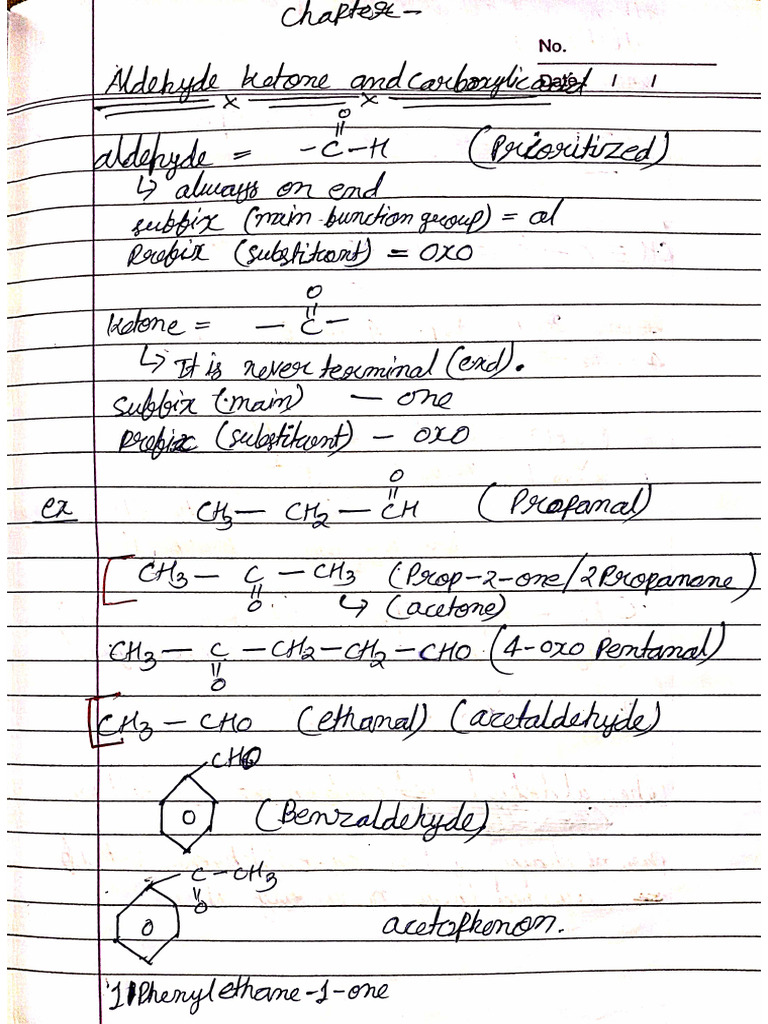 Chapter -
No.
Aldehyde ketone and carboxylic acid
Date / /
O
aldehyde = -C-H (Prioritized)
↳ always on end
suffix (main function group) = al
Prefix (substituent) = oxo
O
ketone = -C-
↳ It is never terminal (end).
suffix (main) - one
prefix (substituent) - oxo
O
ex CH3 - CH2 - CH (Propanal)
CH3 - C - CH3 (Prop-2-one/2Propanone)
O ↳ (acetone)
CH3 - C - CH2-CH2-CHO (4-oxo Pentanal)
O
CH3 - CHO (ethanal) (acetaldehyde)
CHO
O (Benzaldehyde)
C-CH3
O
O acetophenon.
1 Phenylethane-1-one